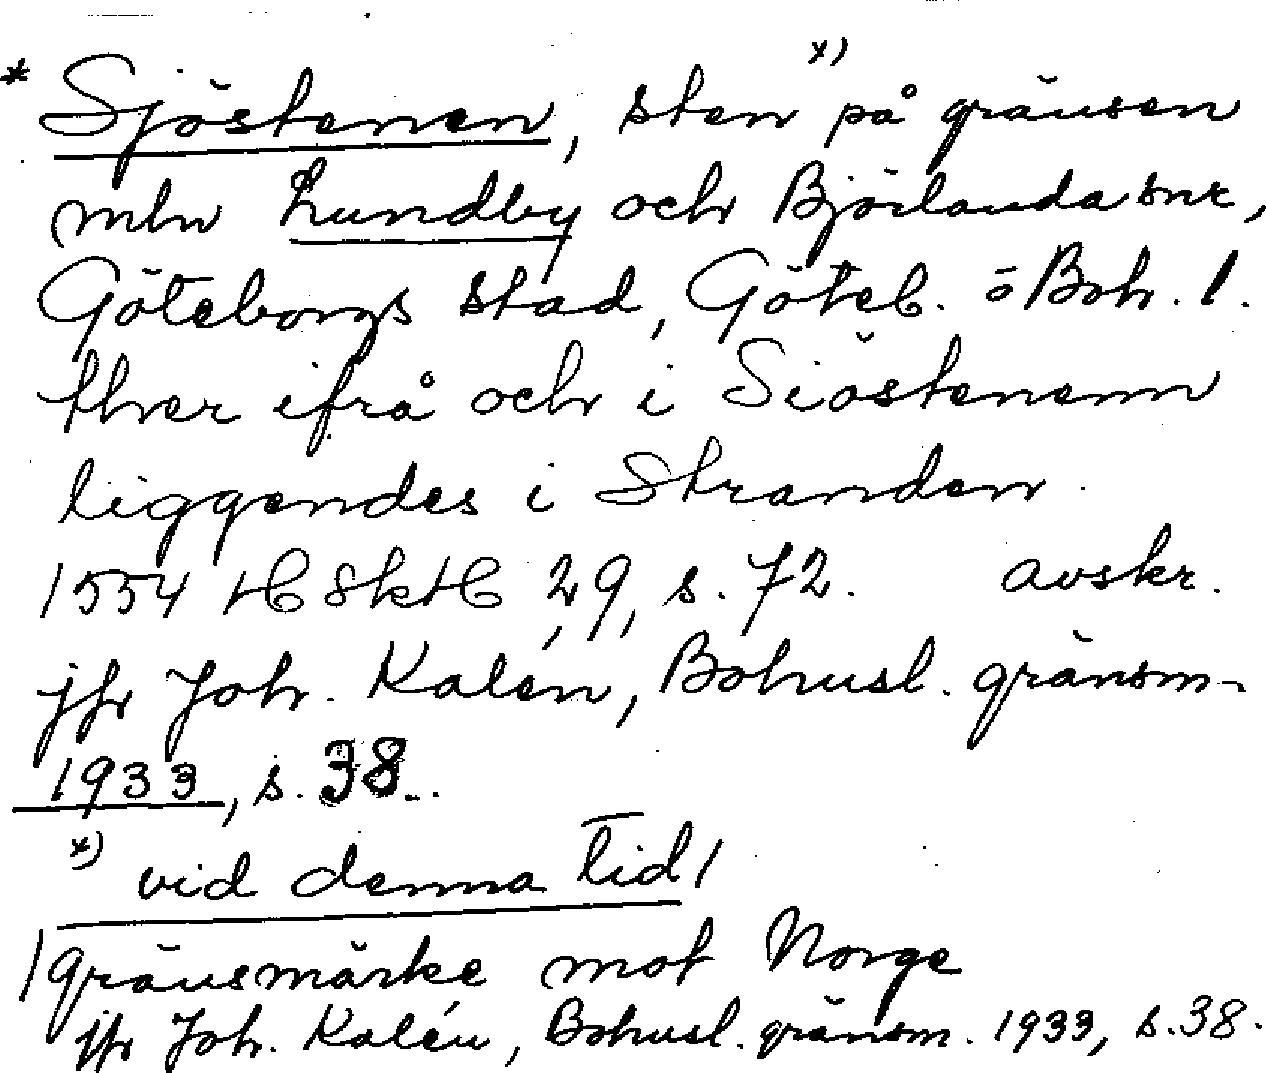 x)
* Sjöstenen, sten på gränsen
mln Lundby och Björlanda snr,
Göteborgs stad, Göteb. o Boh. l.
ther ifrå och i Siöstenenn
liggendes i Stranden.
1554 HC SktH 29, s. 72. avskr.
jfr Joh. Kalén, Bohusl. gränsm-
1933, s. 38..
x) vid denna tid/
/gränsmärke mot Norge
jfr Joh. Kalén, Bohusl. gränsm. 1933, s. 38.